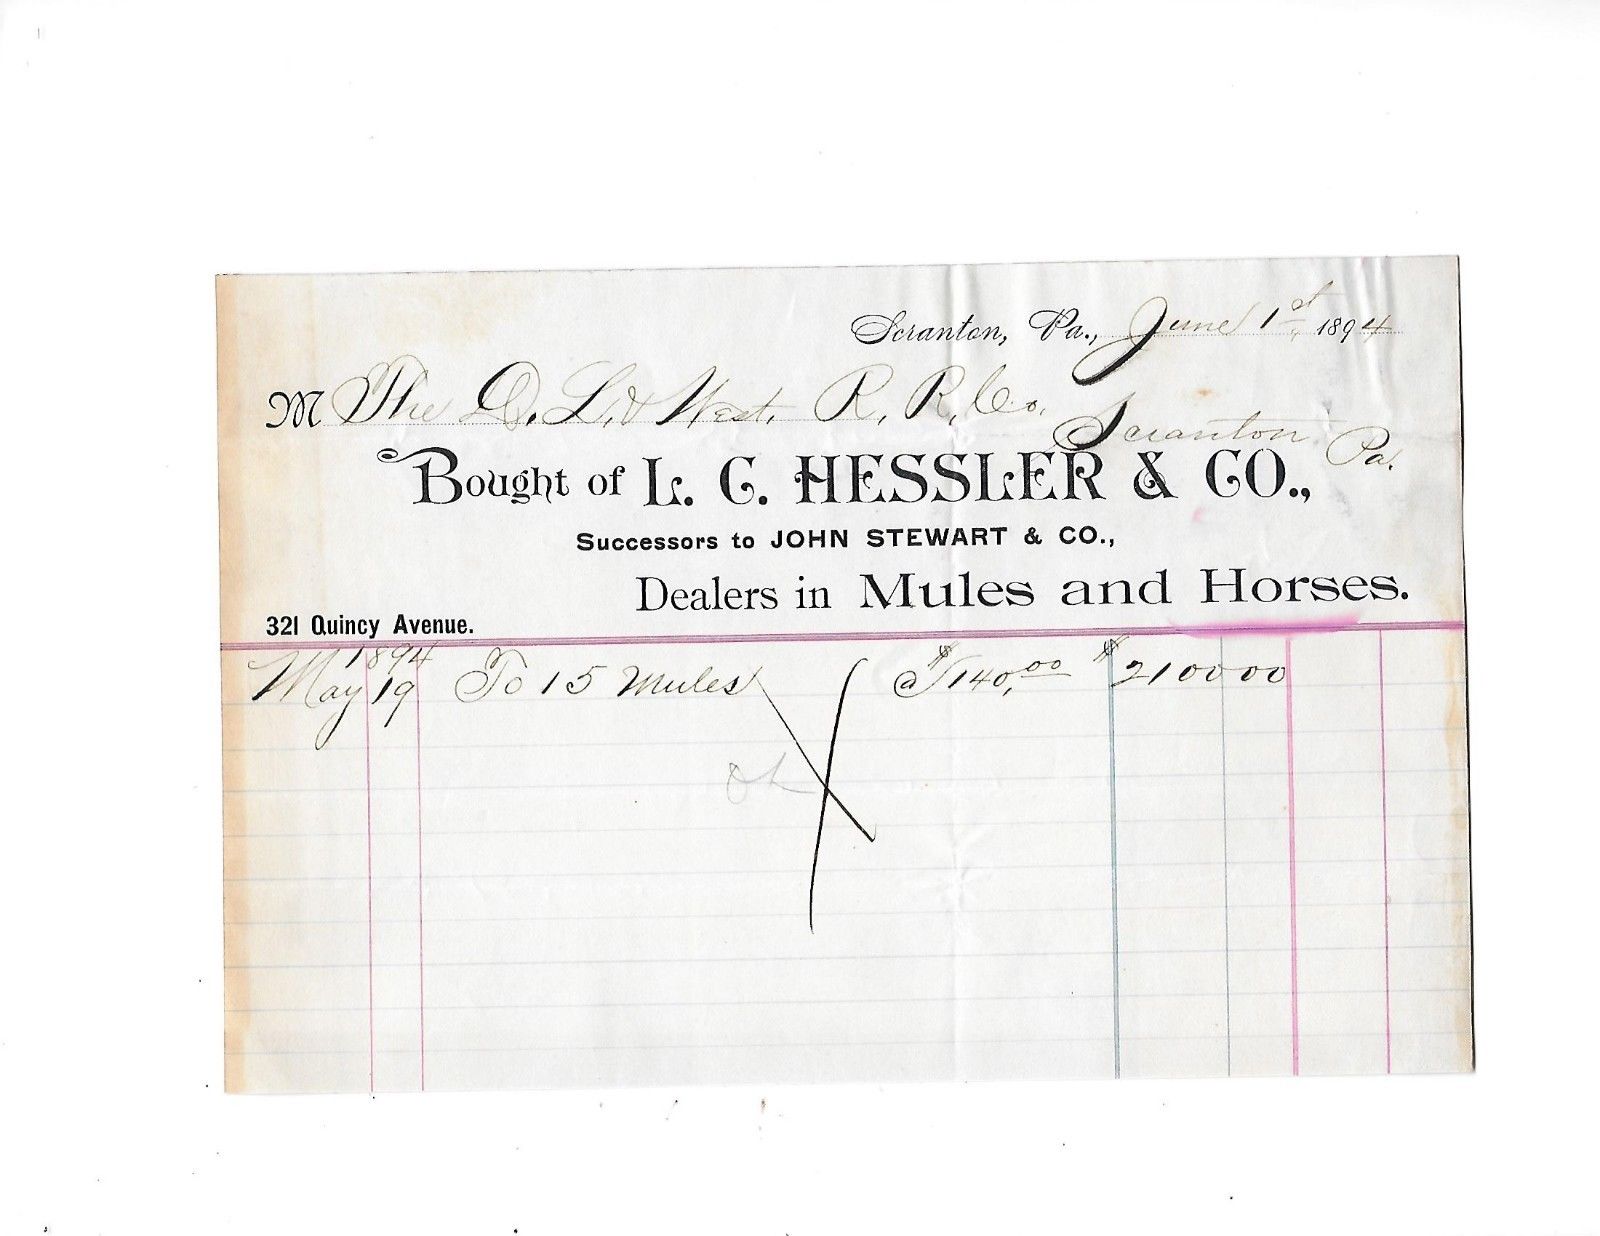 Scranton, Pa., June 1st 1894
M The D. L. & West. R. R. Co.
Scranton Pa.
Bought of L. C. HESSLER & CO.,
Successors to JOHN STEWART & CO.,
Dealers in Mules and Horses.
321 Quincy Avenue.
1894
May 19 To 15 Mules @ $140.00 $2100 00